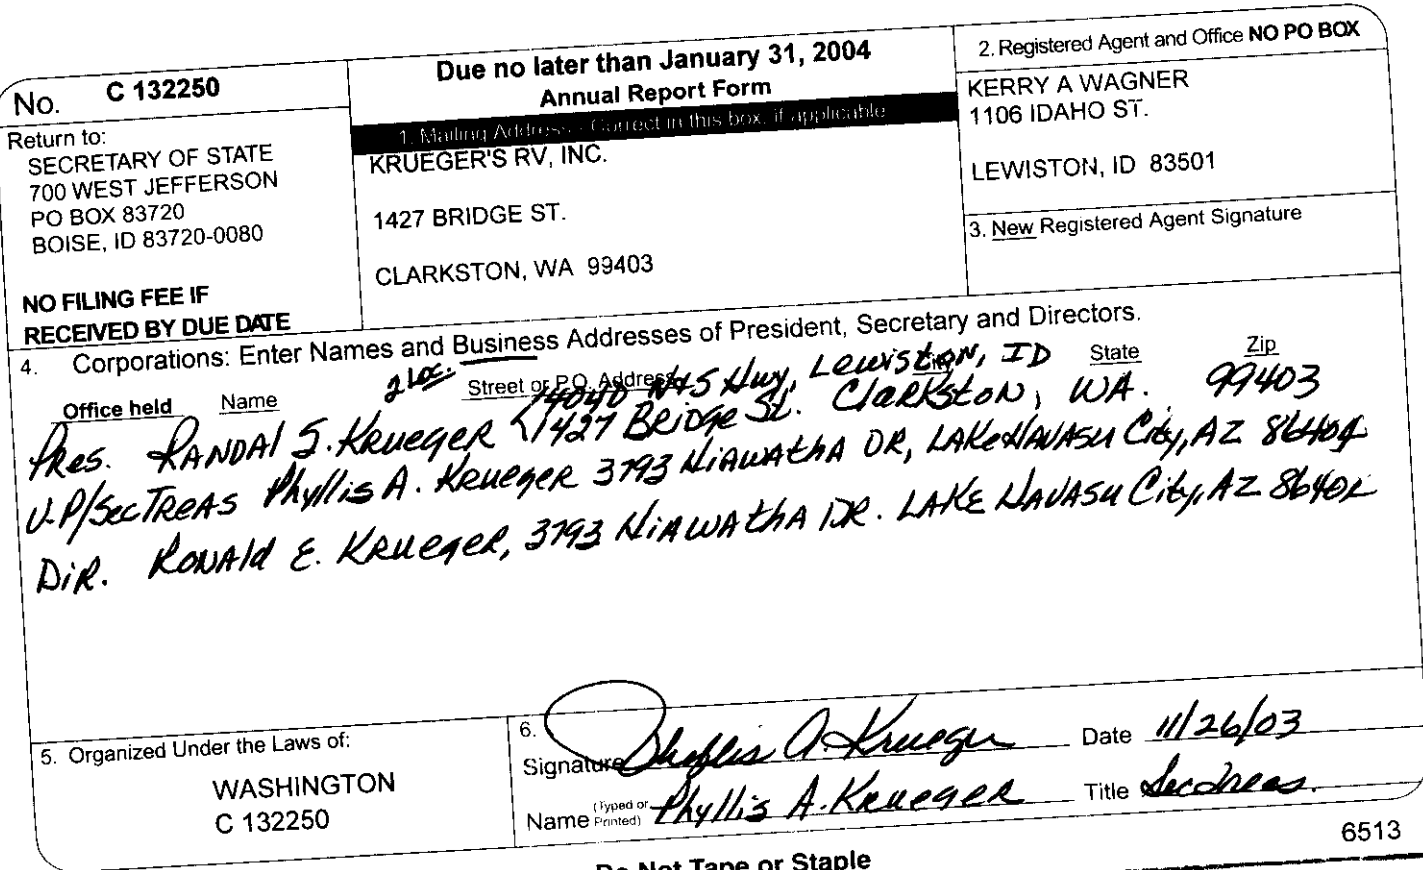 No. C 132250
Return to:
SECRETARY OF STATE
700 WEST JEFFERSON
PO BOX 83720
BOISE, ID 83720-0080
NO FILING FEE IF
RECEIVED BY DUE DATE
Due no later than January 31, 2004
Annual Report Form
1. Mailing Address - Correct in this box, if applicable
KRUEGER'S RV, INC.
1427 BRIDGE ST.
CLARKSTON, WA 99403
2. Registered Agent and Office NO PO BOX
KERRY A WAGNER
1106 IDAHO ST.
LEWISTON, ID 83501
3. New Registered Agent Signature
4. Corporations: Enter Names and Business Addresses of President, Secretary and Directors.
Office held Name Street or P.O. Address City State Zip
2 Loc. 14040 Hwy, Lewiston, ID
Pres. RANDAl S. KRuegeR 1427 BRiDge St. ClaRKstoN, WA. 99403
V.P/SecTReAS Phyllis A. KRuegeR 3793 HiAWAthA DR, LAKe HAVASu City, AZ 86404
DiR. RoNAld E. KRuegeR, 3793 HiAWAthA DR. LAKE HAVASu City, AZ
5. Organized Under the Laws of:
WASHINGTON
C 132250
6.
Signature Phyllis A. Krueger Date 11/26/03
Name (Typed or Printed) Phyllis A. KRuegeR Title Sec Treas.
6513
Do Not Tape or Staple